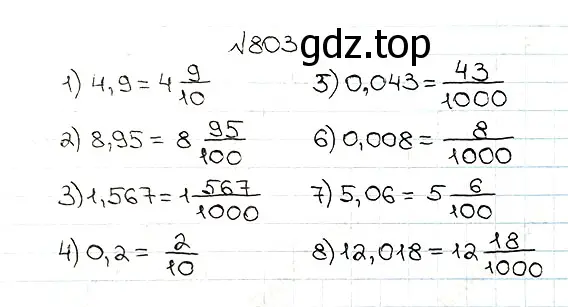 №803 gdz.top
1) 4,9 = 4 9/10
2) 8,95 = 8 95/100
3) 1,567 = 1 567/1000
4) 0,2 = 2/10
5) 0,043 = 43/1000
6) 0,008 = 8/1000
7) 5,06 = 5 6/100
8) 12,018 = 12 18/1000